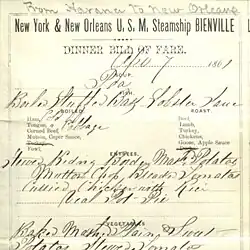 From Havana to New Orleans
New York & New Orleans U. S. M. Steamship BIENVILLE
DINNER BILL OF FARE.
7 1861
Boiled Stuffed Bass Lobster Sauce
BOILED. ROAST.
Ham, Beef,
Tongue, Cabbage Lamb,
Corned Beef, Turkey,
Mutton, Caper Sauce, Chickens,
Turkey, Goose, Apple Sauce
Fowl.
ENTREES.
Stewed Kidney Mashed Potatoes
Mutton Chop Breaded Tomatoes
Curried Chicken with Rice
Veal Pot Pie
VEGETABLES.
Baked Mashed Plain & Sweet
Potatoes Stewed Tomatoes